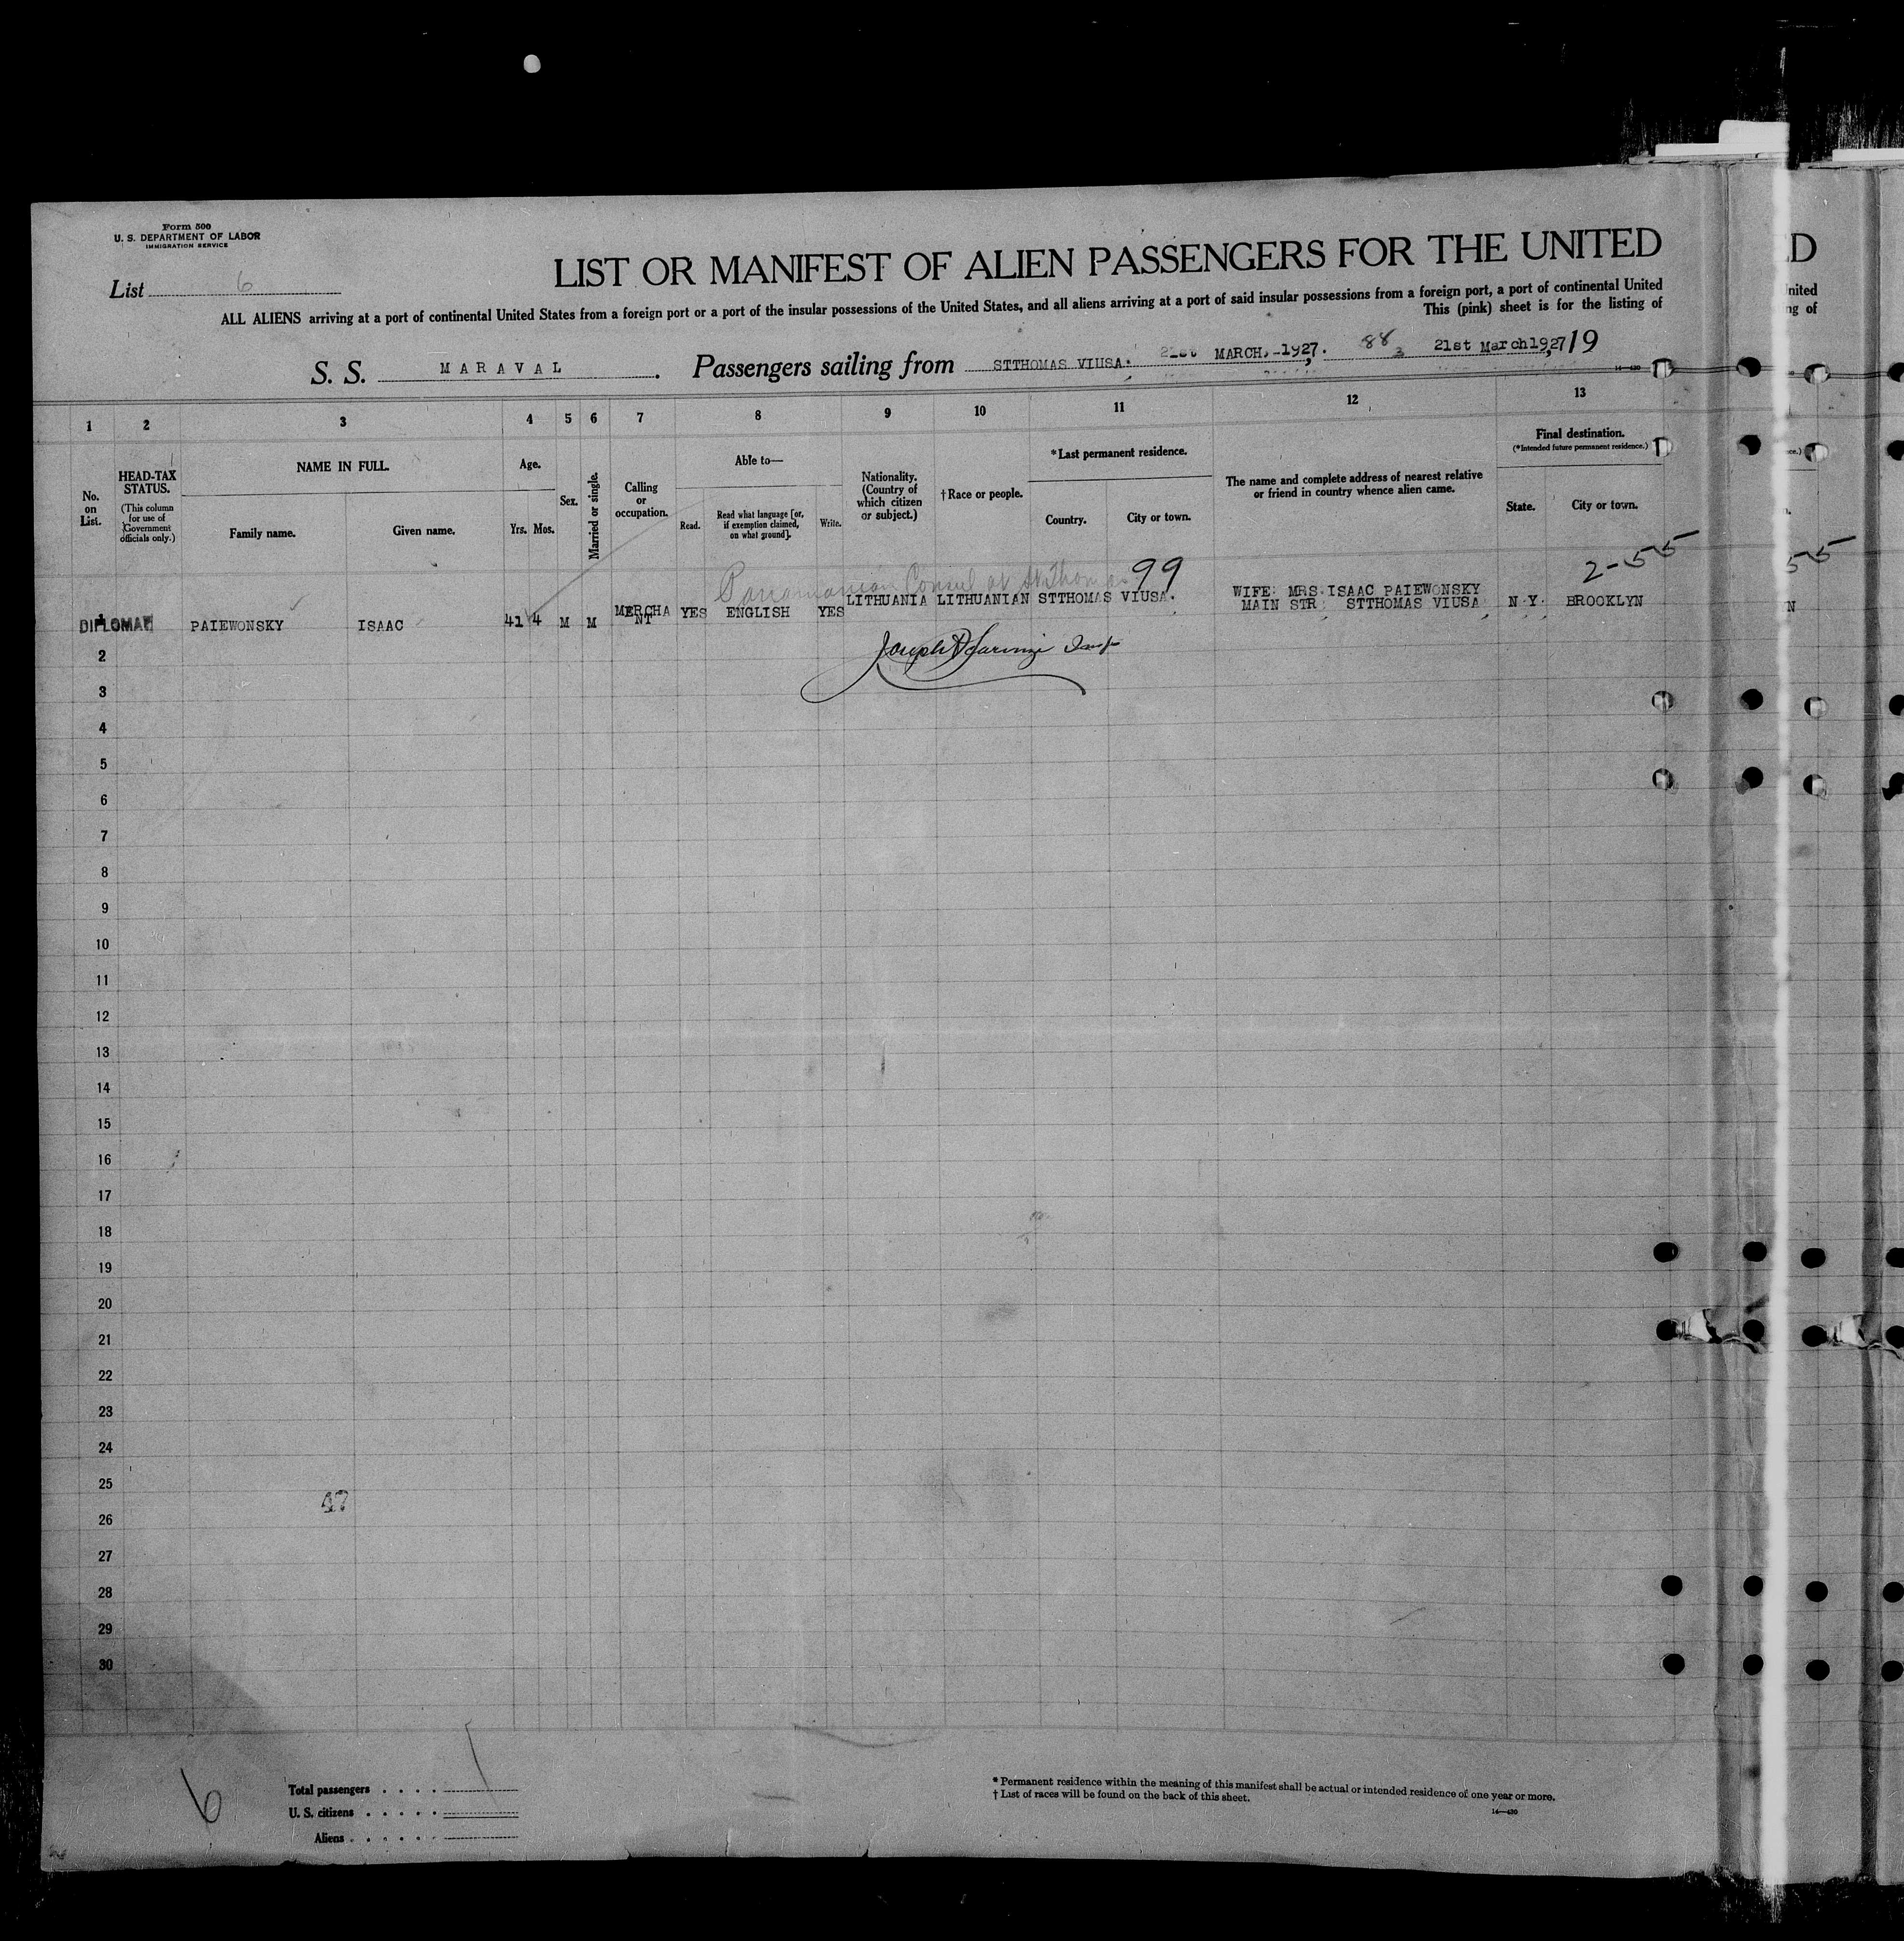 Form 500
U. S. DEPARTMENT OF LABOR
IMMIGRATION SERVICE
List 6
LIST OR MANIFEST OF ALIEN PASSENGERS FOR THE UNITED
ALL ALIENS arriving at a port of continental United States from a foreign port or a port of the insular possessions of the United States, and all aliens arriving at a port of said insular possessions from a foreign port, a port of continental United
This (pink) sheet is for the listing of
S. S. MARAVAL. Passengers sailing from STTHOMAS VIUSA. 21st MARCH, 1927. 88 21st March 1927, 19
1 2 3 4 5 6 7 8 9 10 11 12 13
No. on List.
HEAD-TAX STATUS.
(This column for use of Government officials only.)
NAME IN FULL.
Family name. Given name.
Age.
Yrs. Mos.
Sex.
Married or single.
Calling or occupation.
Able to—
Read. Read what language [or, if exemption claimed, on what ground]. Write.
Nationality. (Country of which citizen or subject.)
†Race or people.
*Last permanent residence.
Country. City or town.
The name and complete address of nearest relative or friend in country whence alien came.
Final destination.
(*Intended future permanent residence.)
State. City or town.
2-55
Panamanian Consul at St Thomas 99
1 DIPLOMAT PAIEWONSKY ISAAC 41 4 M M MERCHANT YES ENGLISH YES LITHUANIA LITHUANIAN STTHOMAS VIUSA. WIFE: MRS ISAAC PAIEWONSKY MAIN STR STTHOMAS VIUSA N.Y. BROOKLYN
2
3
4
5
6
7
8
9
10
11
12
13
14
15
16
17
18
19
20
21
22
23
24
25
47
26
27
28
29
30
6
Total passengers 1
U. S. citizens
Aliens
* Permanent residence within the meaning of this manifest shall be actual or intended residence of one year or more.
† List of races will be found on the back of this sheet.
14—430